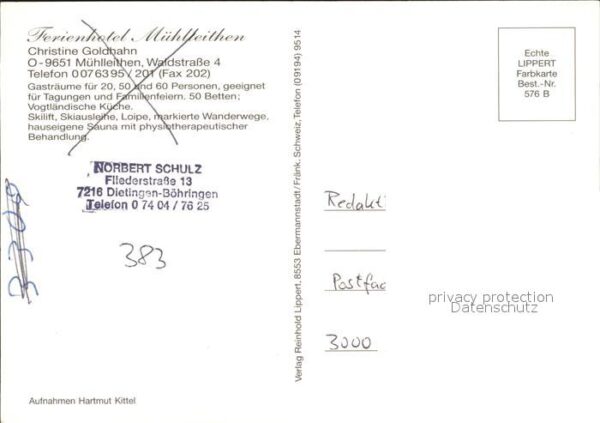 Ferienhotel Mühlleithen
Christine Goldhahn
O-9651 Mühlleithen, Waldstraße 4
Telefon 0076395/201 (Fax 202)
Gasträume für 20, 50 und 60 Personen, geeignet
für Tagungen und Familienfeiern. 50 Betten;
Vogtländische Küche.
Skilift, Skiausleihe, Loipe, markierte Wanderwege,
hauseigene Sauna mit physiotherapeutischer
Behandlung.
NORBERT SCHULZ
Fliederstraße 13
7216 Dietingen-Böhringen
Telefon 0 74 04 / 76 25
383
3309
Aufnahmen Hartmut Kittel
Verlag Reinhold Lippert, 8553 Ebermannstadt/Fränk. Schweiz, Telefon (09194) 9514
Echte
LIPPERT
Farbkarte
Best.-Nr.
576 B
Redakt
Postfac
3000
privacy protection
Datenschutz